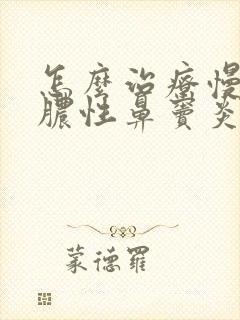 怎麼治療慢
膿性鼻竇炎
蒙德羅